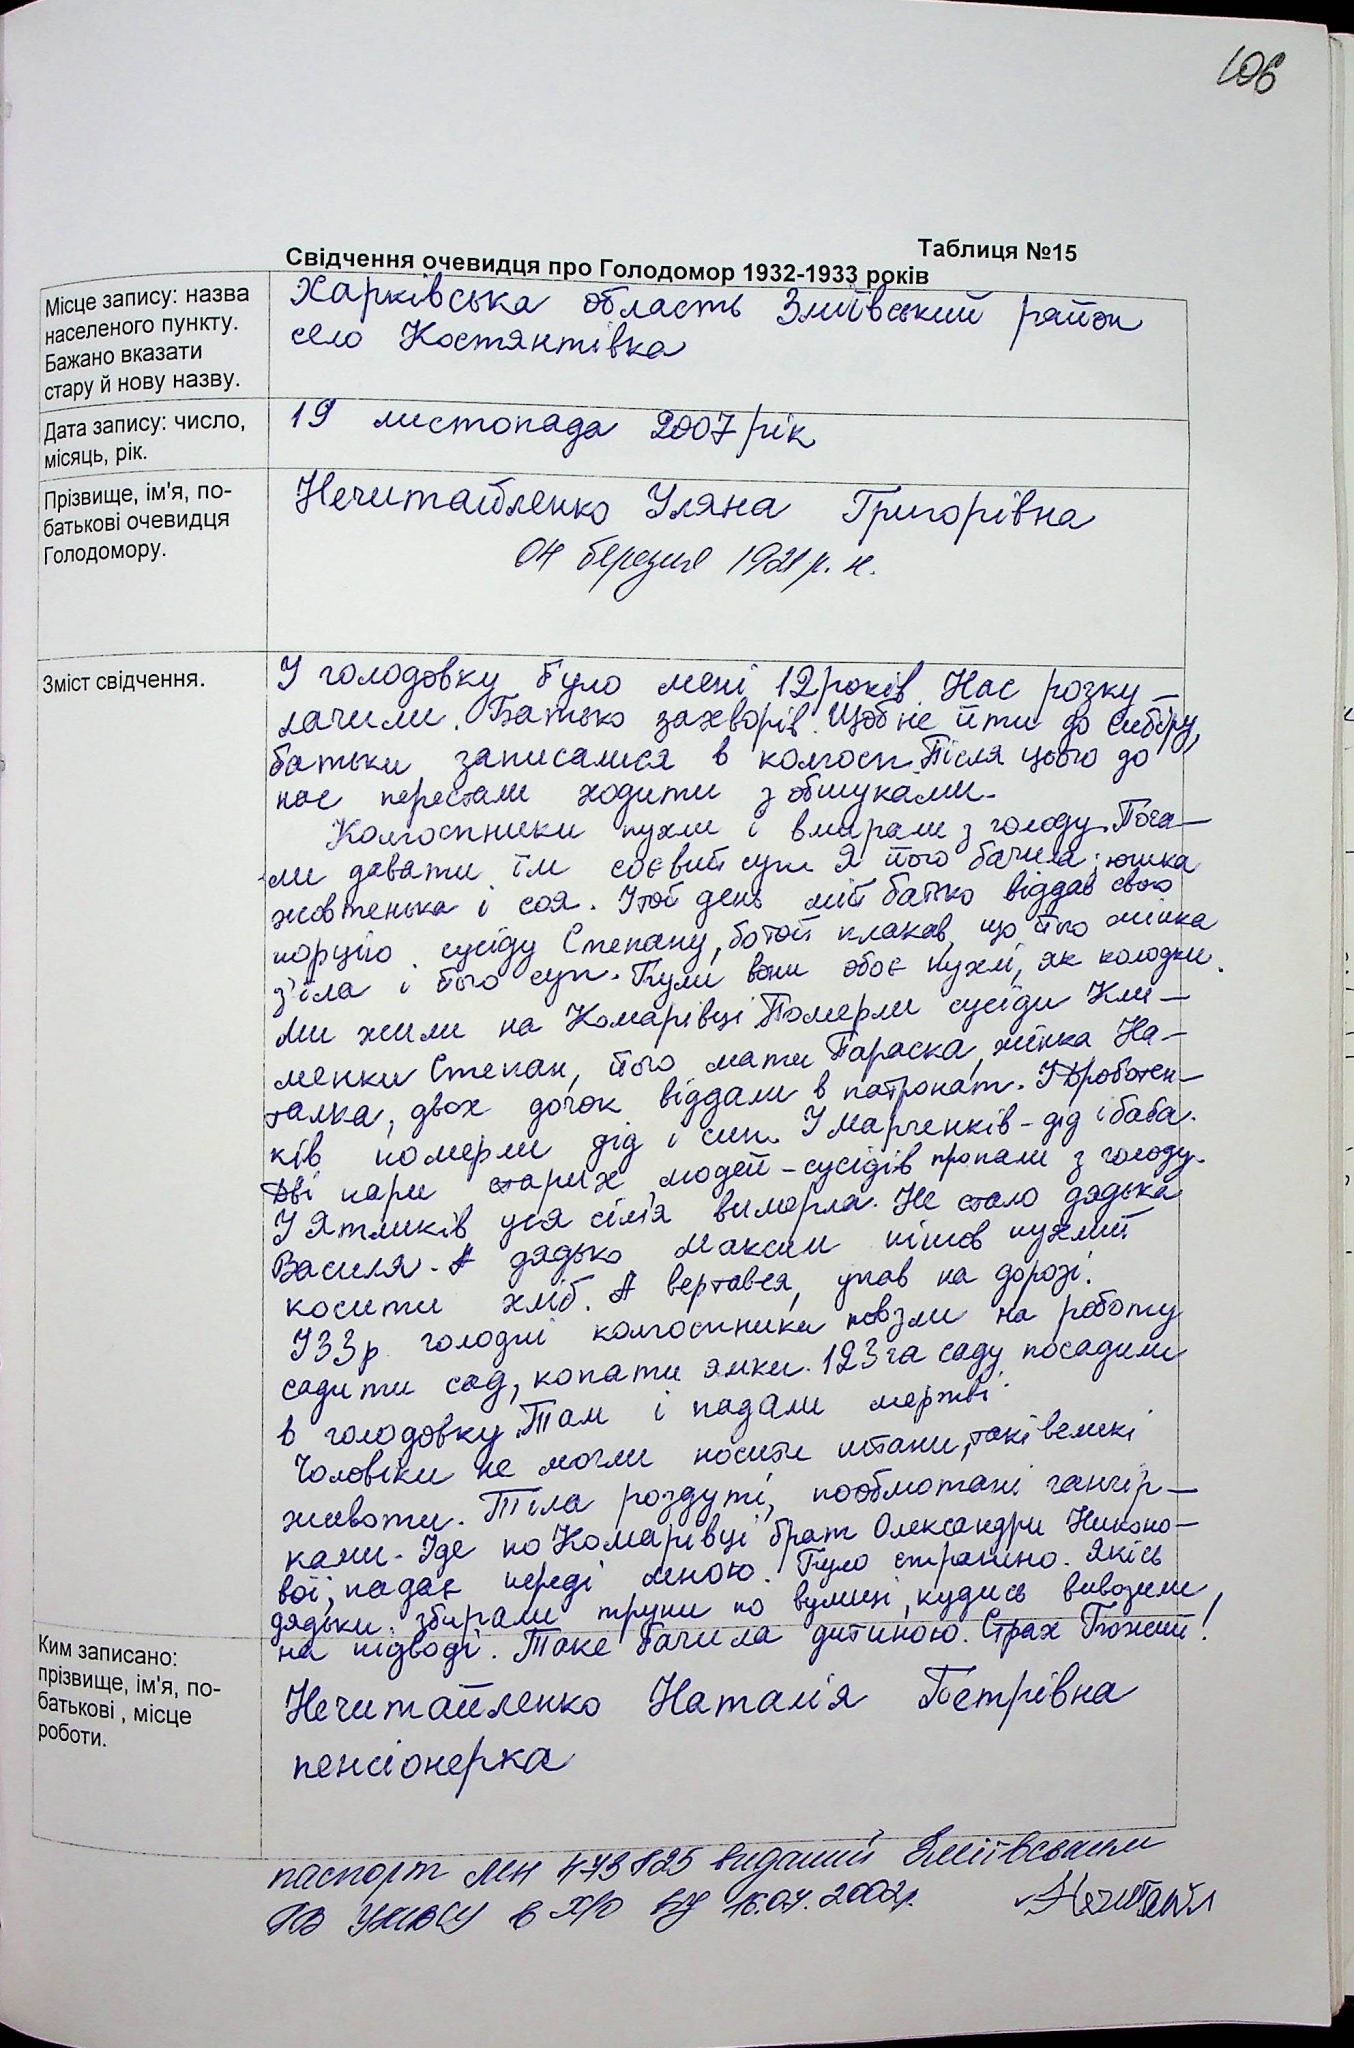 106
Таблиця №15
Свідчення очевидця про Голодомор 1932-1933 років
Місце запису: назва
населеного пункту.
Бажано вказати
стару й нову назву.
Харківська область Зміївський район
село Костянтівка
Дата запису: число,
місяць, рік.
19 листопада 2007 рік
Прізвище, ім'я, по-
батькові очевидця
Голодомору.
Нечитайленко Уляна Григорівна
04 березня 1921 р. н.
Зміст свідчення.
У голодовку було мені 12 років. Нас розку-
лачили. Батько захворів. Щоб не йти до Сибіру,
батьки записалися в колгосп. Після цього до
нас перестали ходити з обшуками.
Колгоспники пухли і вмирали з голоду. Поча-
ли давати їм соєвий суп. Я його бачила: юшка
жовтенька і соя. У той день мій батько віддав свою
порцію сусіду Степану, бо той плакав, що його жінка
з'їла і його суп. Були вони обоє пухлі, як колодки.
Ми жили на Комарівці. Померли сусіди Кли-
менки Степан, його мати Параска, жінка На-
талка, двох дочок віддали в патронат. У Дроботен-
ків померли дід і син. У Марченків - дід і баба.
Дві пари старих людей - сусідів пропали з голоду.
У Ятликів уся сім'я вимерла. Не стало дядька
Василя. А дядько Максим пішов пухлий
косити хліб. А вертався, упав на дорозі.
У 33 р. голодні колгоспники повзли на роботу
садити сад, копати ямки. 123 га саду посадили
в голодовку. Там і падали мертві.
Чоловіки не могли носити штани, такі великі
животи. Тіла роздуті, пообмотані ганчір-
ками. Іде по Комарівці брат Олександри Никоно-
вої, падає переді мною. Було страшно. Якісь
дядьки збирали трупи по вулиці, кудись вивозили
на підводі. Таке бачила дитиною. Страх Божий!
Ким записано:
прізвище, ім'я, по-
батькові , місце
роботи.
Нечитайленко Наталія Петрівна
пенсіонерка
паспорт МН 473825 виданий Зміївським
РВ УМВСУ в Х/о від 16.07.2002р. Нечитайл